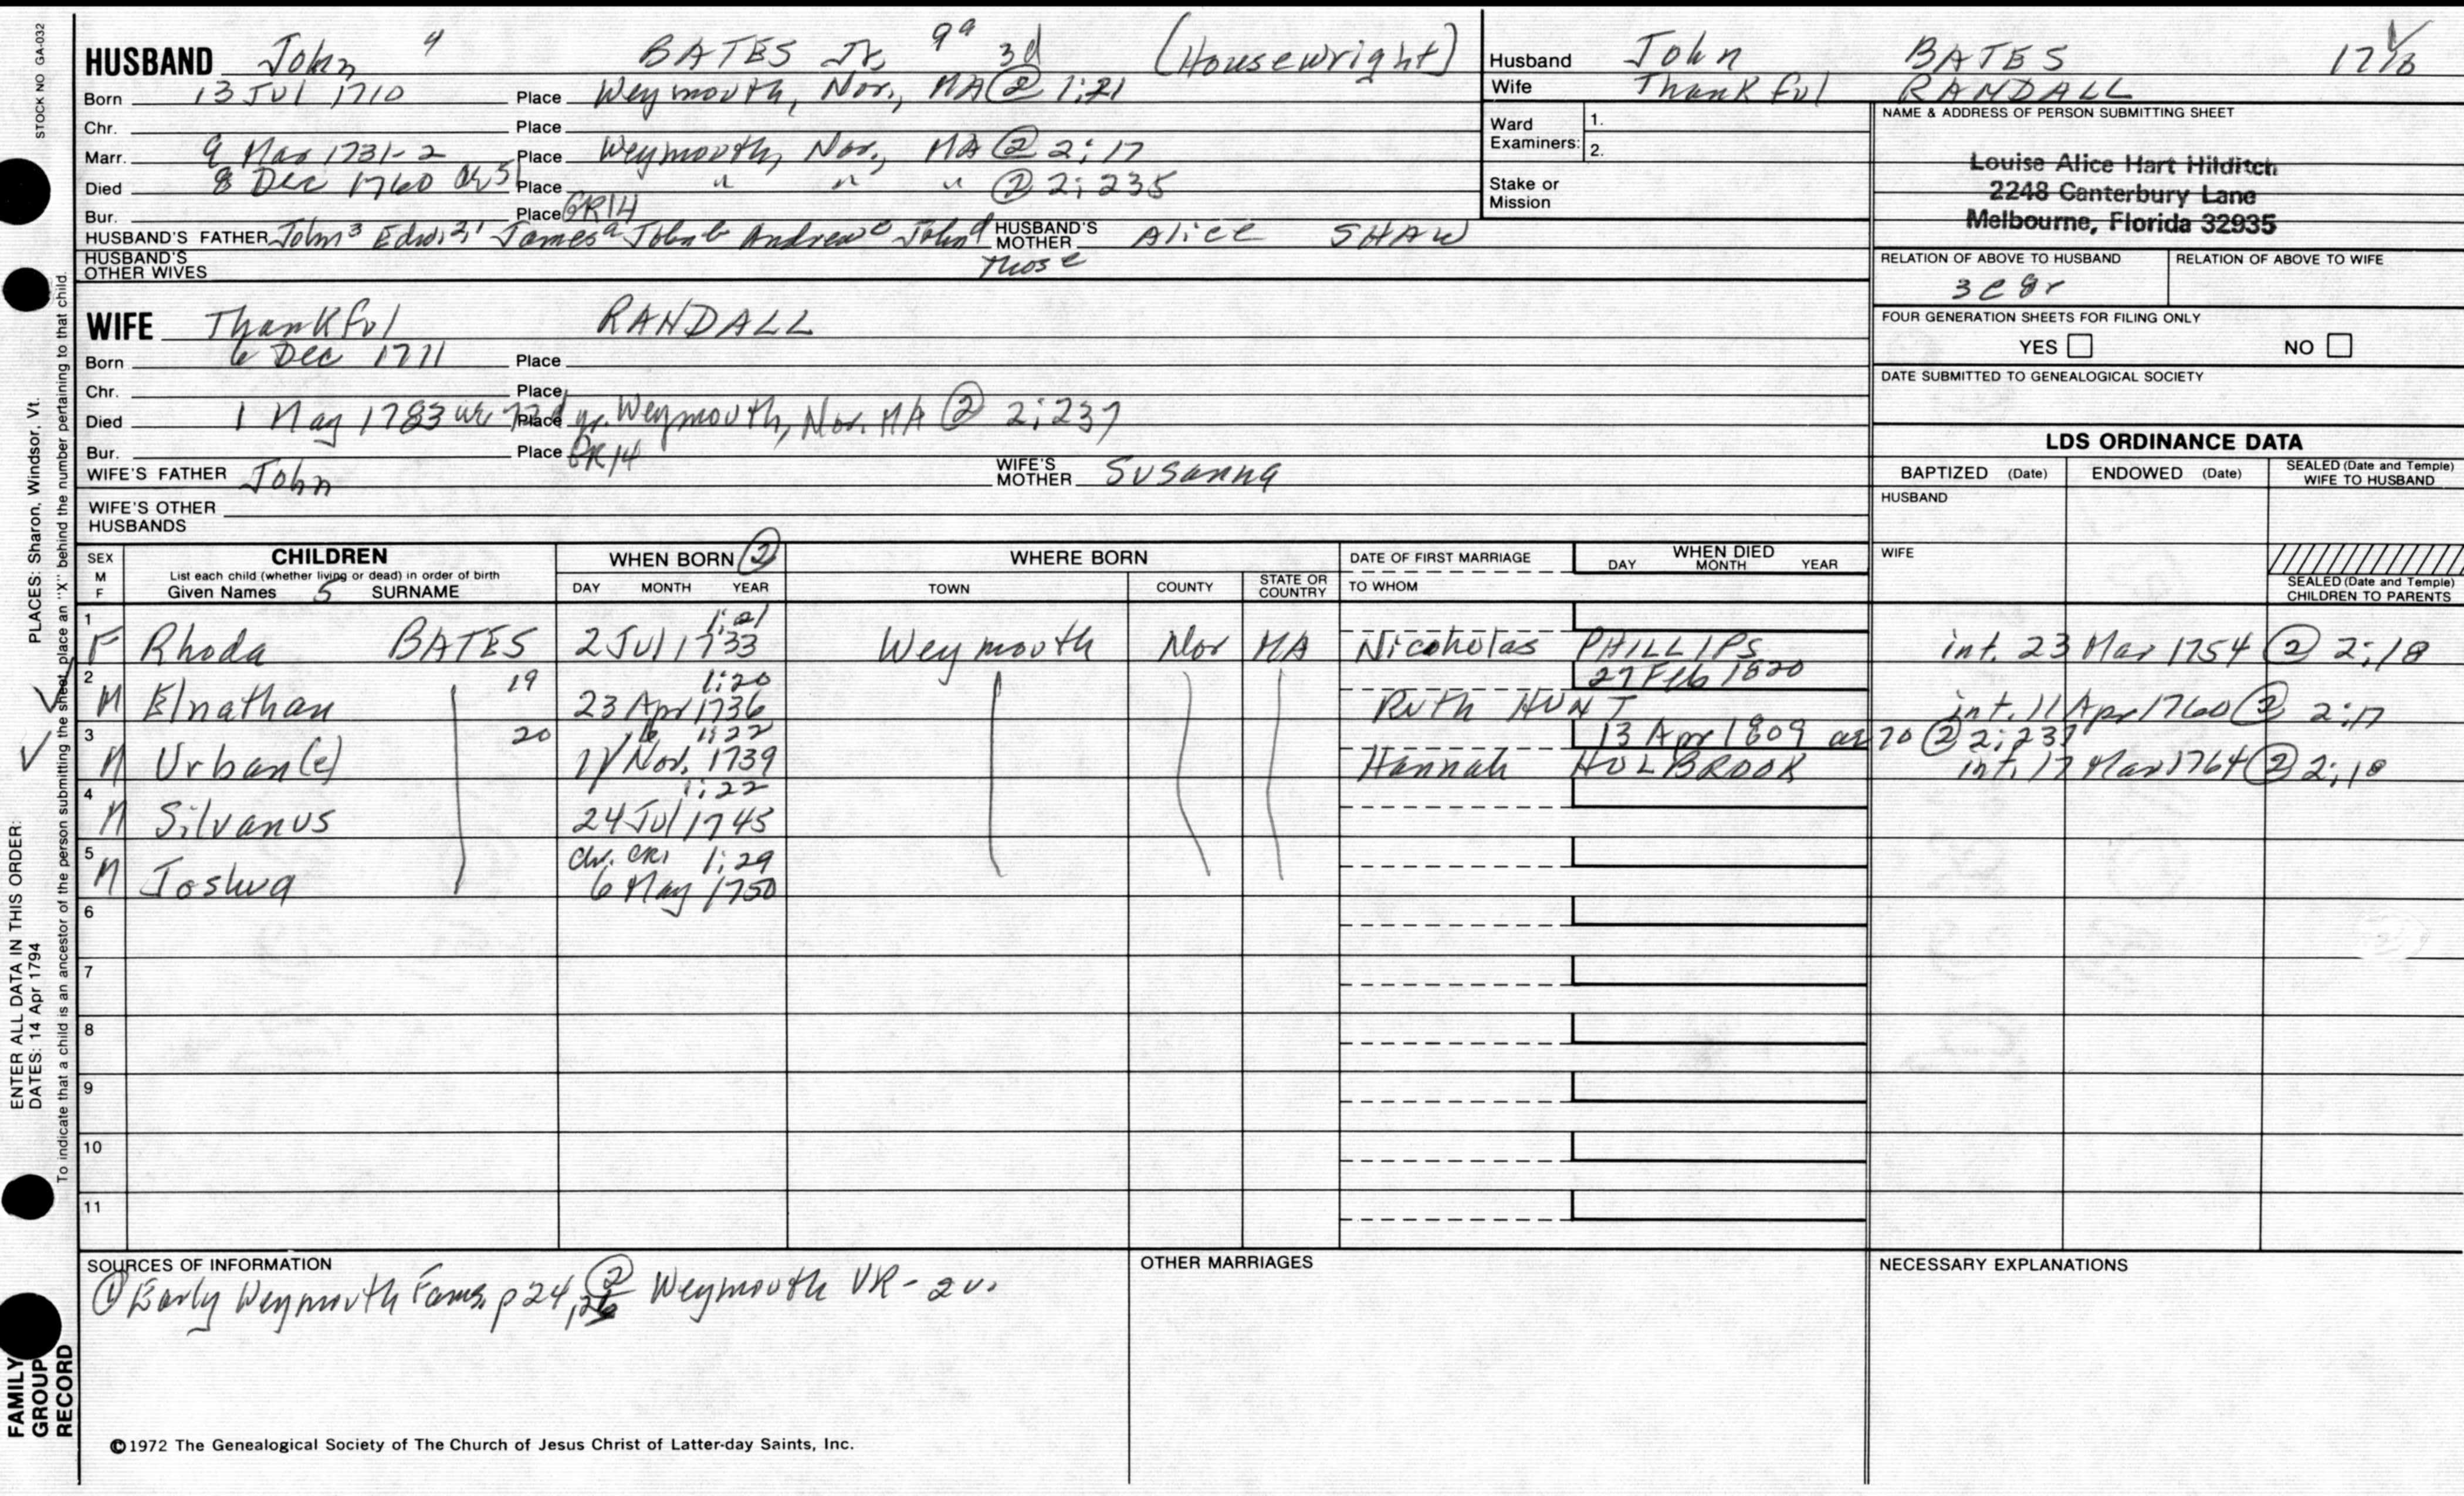 STOCK NO GA-032
HUSBAND John 4 BATES Jr, 9a 3d (Housewright)
Born 13 Jul 1710 Place Weymouth, Nor., MA @ 1:21
Chr. Place
Marr. 9 Mar 1731-2 Place Weymouth, Nor., MA @ 2:17
Died 8 Dec 1760 ae 51 Place " " " @ 2:235
Bur. Place GR14
HUSBAND'S FATHER John3 Edw.2,1 Jamesa Johnb Andrewc Johnd HUSBAND'S MOTHER Alice SHAW
HUSBAND'S OTHER WIVES
Husband John BATES
Wife Thankful RANDALL
Ward Examiners: 1.
2.
Stake or Mission
NAME & ADDRESS OF PERSON SUBMITTING SHEET
Louise Alice Hart Hilditch
2248 Canterbury Lane
Melbourne, Florida 32935
RELATION OF ABOVE TO HUSBAND RELATION OF ABOVE TO WIFE
3c 8r
FOUR GENERATION SHEETS FOR FILING ONLY
YES NO
DATE SUBMITTED TO GENEALOGICAL SOCIETY
WIFE Thankful RANDALL
Born 6 Dec 1711 Place
Chr. Place
Died 1 May 1783 in 72d yr. Place Weymouth, Nor. MA @ 2:237
Bur. Place GR14
WIFE'S FATHER John WIFE'S MOTHER Susanna
WIFE'S OTHER HUSBANDS
LDS ORDINANCE DATA
BAPTIZED (Date) ENDOWED (Date) SEALED (Date and Temple) WIFE TO HUSBAND
HUSBAND
WIFE
SEALED (Date and Temple) CHILDREN TO PARENTS
SEX M F CHILDREN WHEN BORN 2 WHERE BORN DATE OF FIRST MARRIAGE WHEN DIED
List each child (whether living or dead) in order of birth
Given Names 5 SURNAME DAY MONTH YEAR TOWN COUNTY STATE OR COUNTRY TO WHOM DAY MONTH YEAR
1 1:21
F Rhoda BATES 2 Jul 1733 Weymouth Nor MA Nicoholas PHILLIPS int. 23 Mar 1754 @ 2:18
2 19 1:20 27 Feb 1820
M Elnathan 23 Apr 1736 Ruth HUNT int. 11 Apr 1760 @ 2:17
3 20 1:22 13 Apr 1809 ae 70 @ 2:237
M Urban(e) Nov. 1739 Hannah HOLBROOK int. 17 Mar 1764 @ 2:18
4 1:22
M Silvanus 24 Jul 1745
5 chr. CR1 1:29
M Joshua 6 May 1750
6
7
8
9
10
11
SOURCES OF INFORMATION
1 Early Weymouth Fams. p 24, 26 2 Weymouth VR - 2 v.
OTHER MARRIAGES
NECESSARY EXPLANATIONS
©1972 The Genealogical Society of The Church of Jesus Christ of Latter-day Saints, Inc.
FAMILY GROUP RECORD
ENTER ALL DATA IN THIS ORDER:
DATES: 14 Apr 1794
PLACES: Sharon, Windsor, Vt.
To indicate that a child is an ancestor of the person submitting the sheet, place an "X" behind the number pertaining to that child.